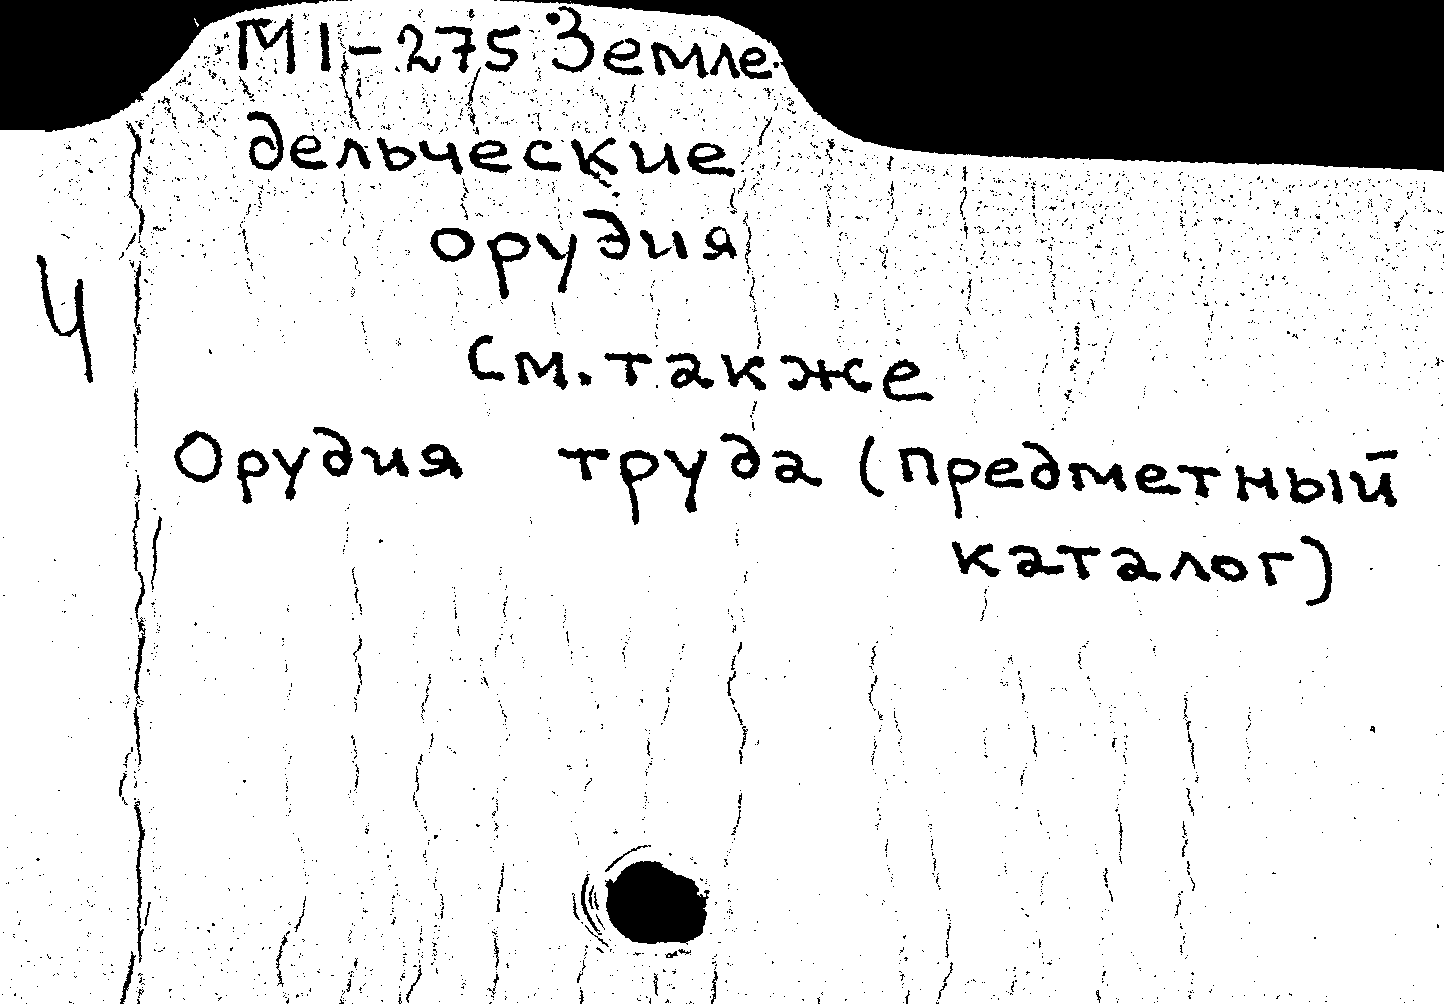 М1-275 Земле
дельческие
орудия
Ч
см. также
Орудия труда (предметный
каталог)